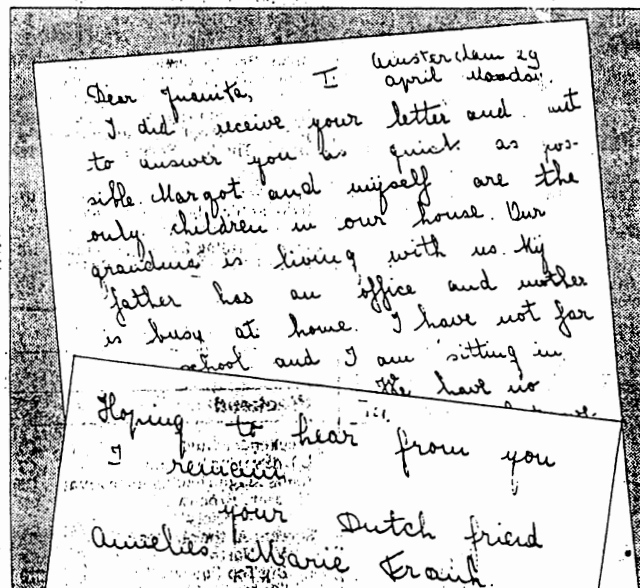 Amsterdam 29
April Monday.
Dear Juanita, I
I did receive your letter and
to answer you as quick as pos-
sible. Margot and myself are the
only children in our house. Our
grandma is living with us. My
father has an office and mother
is busy at home. I have not far
school and I am sitting in
We have no
Hoping to hear from you
I remain
your Dutch friend
Annelies Marie Frank.